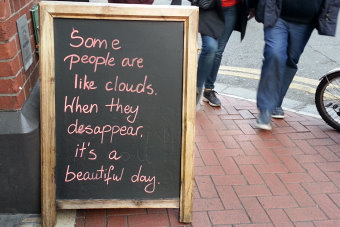 Some
people are
like clouds.
When they
desappear,
it's a
beautiful day.